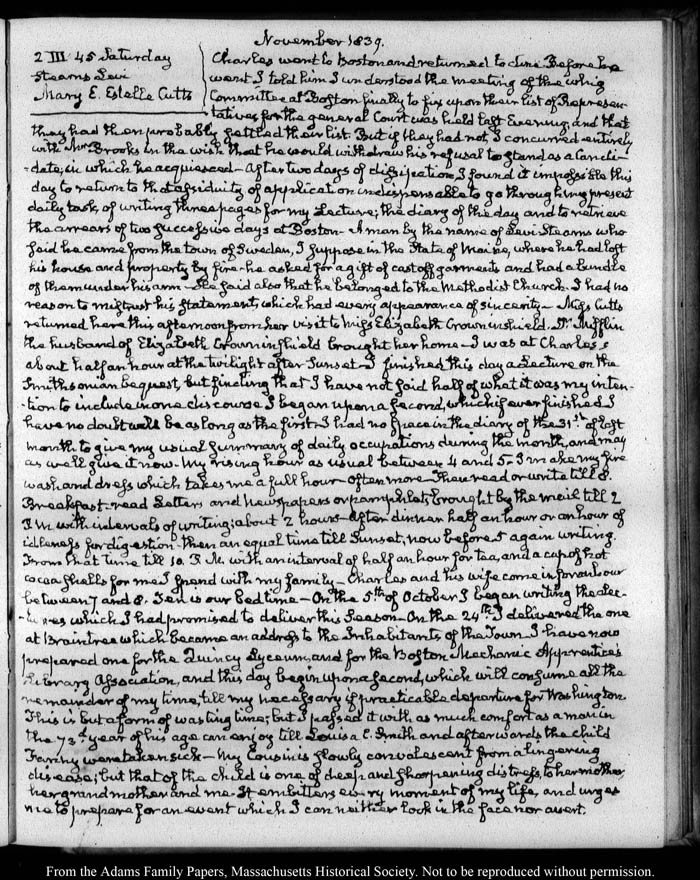 November 1839.
2 III 45 Saturday
Stearns Levi
Mary E. Estelle Cutts
Charles went to Boston and returned to dine Before he
went I told him I understood the meeting of the Whig
Committee at Boston finally to fix upon their list of Represen-
tatives for the general Court was held last Evening, and that
they had then probably settled their list. But if they had not, I concurred entirely
with Mr Brooks in the wish that he would withdraw his refusal to stand as a candi-
-date, in which he acquiesced - After two days of dissipation, I found it impossible this
day to return to that assiduity of application indispensable to go through my present
daily task, of writing three pages for my Lecture; the diary of the day and to retrieve
the arrears of two successive days at Boston - A man by the name of Levi Stearns who
said he came from the town of Sweden, I suppose in the State of Maine, where he had lost
his house and property by fire - he asked for a gift of cast off garments and had a bundle
of them under his arm - He said also that he belonged to the Methodist Church. I had no
reason to mistrust his Statement, which had every appearance of sincerity - Miss Cutts
returned here this afternoon from her visit to Miss Elizabeth Crowninshield. Dr Mifflin
the husband of Elizabeth Crowninshield brought her home - I was at Charles's
about half an hour at the twilight after Sunset - I finished this day a Lecture on the
Smithsonian bequest, but finding that I have not said half of what it was my inten-
-tion to include in one discourse I began upon a second, which if ever finished I
have no doubt will be as long as the first - I had no space in the diary of the 31st of last
month to give my usual summary of daily occupations during the month, and may
as well give it now - My rising hour as usual between 4 and 5 - I make my fire
wash and dress which takes me a full hour - often more - Then read or write till 8.
Breakfast - read Letters and Newspapers or pamphlets, brought by the mail till 2
P.M. with intervals of writing; about 2 hours - After dinner half an hour or an hour of
idleness for digestion - then an equal time till Sunset, now before 5 again writing.
From that time till 10 P.M. with an interval of half an hour for tea, and a cup of hot
cocoa shells for me I spend with my family - Charles and his wife come in for an hour
between 7 and 8. Ten is our bed time - On the 5th of October I began writing the Lec-
-tures which I had promised to deliver this Season - On the 24th I delivered the one
at Braintree which became an address to the Inhabitants of the Town - I have now
prepared one for the Quincy Lyceum, and for the Boston Mechanic Apprentice's
Library Association, and this day begin upon a second, which will consume all the
remainder of my time, till my necessary if practicable departure for Washington.
This is but a form of wasting time; but I passed it with as much comfort as a man in
the 73d year of his age can enjoy till Louisa C. Smith and afterwards the child
Fanny were taken sick - My Cousin is slowly convalescent from a lingering
disease; but that of the child is one of deep and sharpening distress, to her mother,
her grandmother and me. It embitters every moment of my life, and urges
me to prepare for an event which I can neither look in the face nor avert.
From the Adams Family Papers, Massachusetts Historical Society. Not to be reproduced without permission.